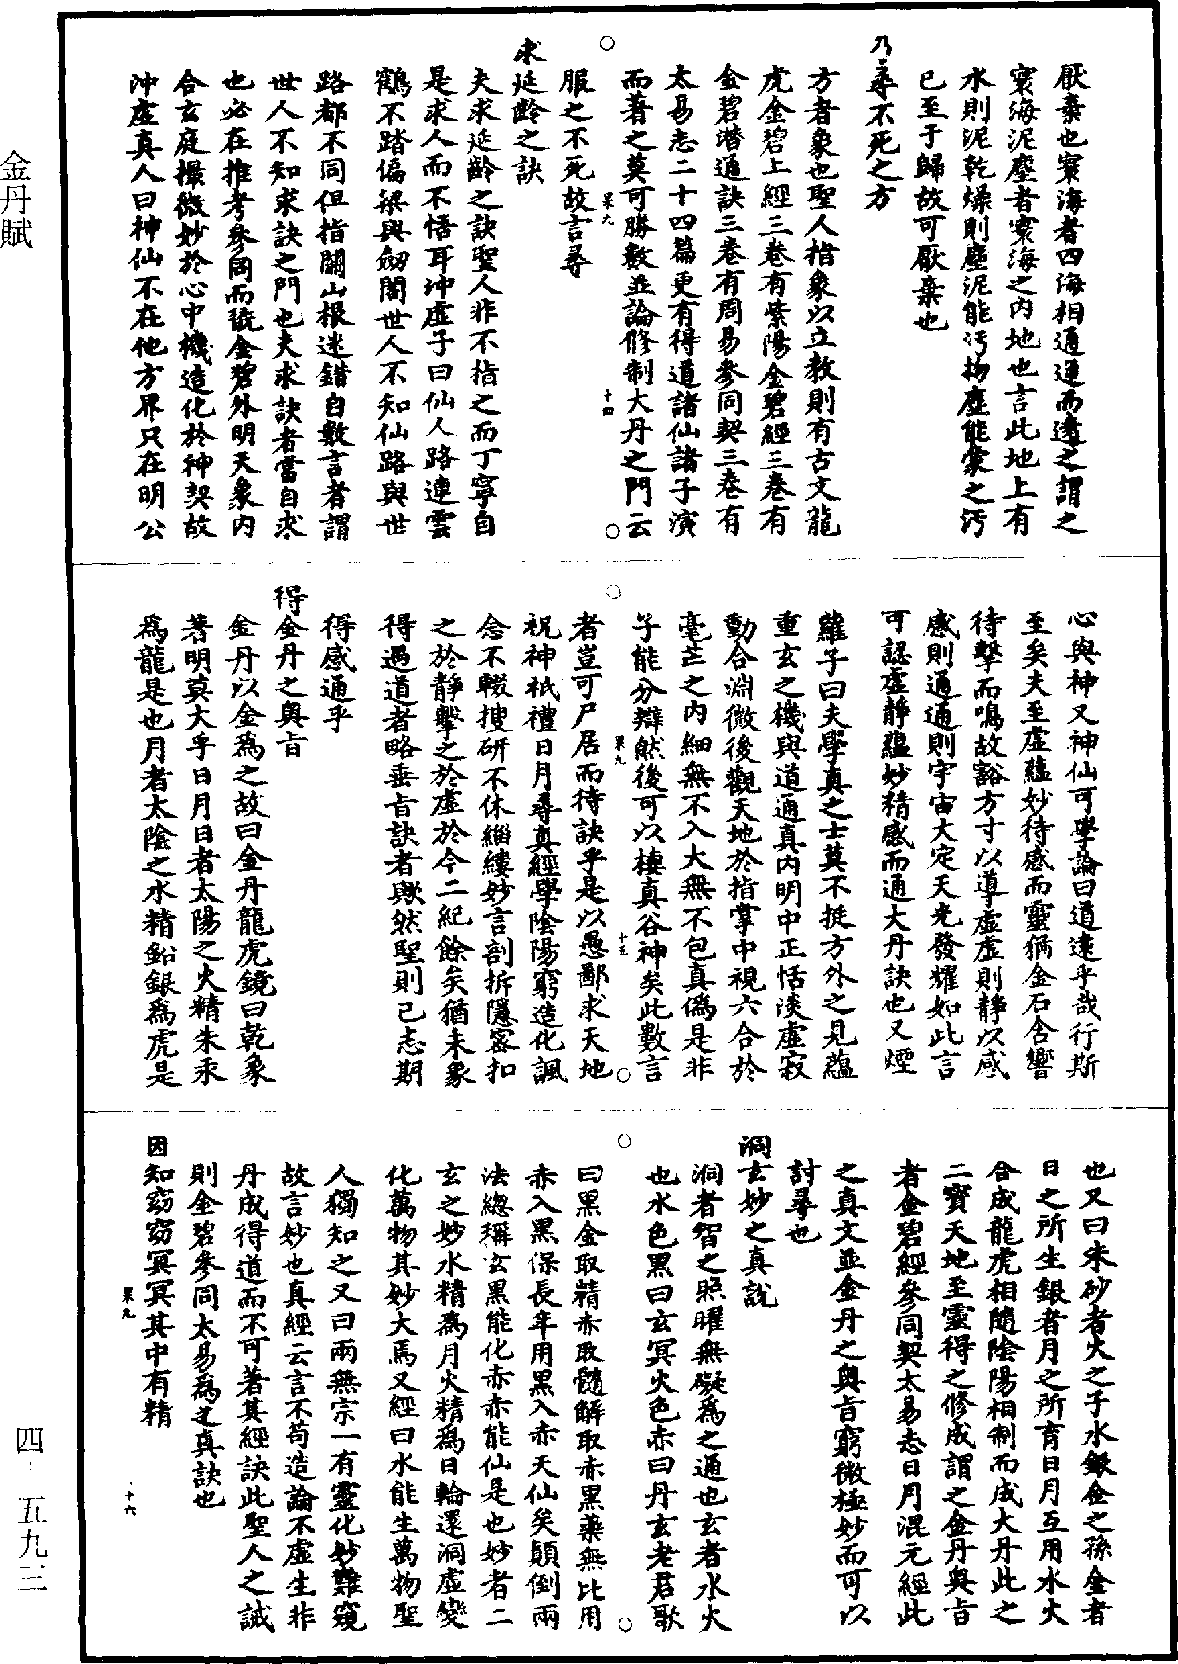 金丹賦
厭棄也寰海者四海相通通而遶之謂之
寰海泥塵者寰海之内地也言此地上有
水則泥乾燥則塵泥能汚物塵能蒙之汚
已至于歸故可厭棄也
乃尋不死之方
方者象也聖人指象以立教則有古文龍
虎金碧上經三卷有紫陽金碧經三卷有
金碧潛通訣三卷有周易參同契三卷有
太易志二十四篇更有得道諸仙諸子演
而著之莫可勝數並論修制大丹之門云
果九
十四
服之不死故言尋
求延齡之訣
夫求延齡之訣聖人非不指之而丁寧自
是求人而不悟耳沖虛子曰仙人路連雲
鶴不踏偏梁與劒閣世人不知仙路與世
路都不同但指關山根迷錯自數言者謂
世人不知求訣之門也夫求訣者當自求
也必在推考參同而號金碧外明天象内
合玄庭撮微妙於心中機造化於神契故
沖虛真人曰神仙不在他方界只在明公
心與神又神仙可學論曰道遠乎哉行斯
至矣夫至虛蘊妙待感而靈猶金石含響
待擊而鳴故豁方寸以導虛虛則靜以感
感則通通則宇宙大定天光發耀如此言
可認虛靜蘊妙精感而通大丹訣也又煙
蘿子曰夫學真之士莫不挺方外之見蘊
重玄之機與道通真内明中正恬淡虛寂
動合淵微後觀天地於指掌中視六合於
毫芒之内細無不入大無不包真偽是非
子能分辯然後可以棲真谷神矣此數言
果九
十五
者豈可尸居而待訣乎是以愚鄙求天地
祝神祇禮日月尋真經學陰陽窮造化諷
念不輟搜研不休緇縷妙言剖拆隱密扣
之於靜擊之於虛於今二紀餘矣猶未象
得過道者略垂旨訣者歟然聖則已志期
得感通乎
得金丹之奧旨
金丹以金為之故曰金丹龍虎鏡曰乾象
著明莫大乎日月日者太陽之火精朱汞
為龍是也月者太陰之水精鉛銀為虎是
也又曰朱砂者火之子水銀金之孫金者
日之所生銀者月之所育日月互用水火
合成龍虎相隨陰陽相制而成大丹此之
二寶天地至靈得之修成謂之金丹奧旨
者金碧經參同契太易志日月混元經此
之真文並金丹之奧旨窮微極妙而可以
討尋也
洞玄妙之真說
洞者智之照曜無礙為之通也玄者水火
也水色黑曰玄冥火色赤曰丹玄老君歌
曰黑金取精赤取髓解取赤黑藥無比用
赤入黑保長年用黑入赤天仙矣顛倒兩
法總稱玄黑能化赤赤能仙是也妙者二
玄之妙水精為月火精為日輪還洞虛變
化萬物其妙大焉又經曰水能生萬物聖
人獨知之又曰兩無宗一有靈化妙難窺
故言妙也真經云言不苟造論不虛生非
丹成得道而不可著其經訣此聖人之誡
則金碧參同太易為之真訣也
因知窈窈冥冥其中有精
果九
十六
四·五九三